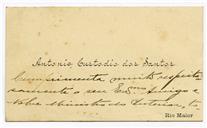 Antonio Custodio dos Santos
Cumprimenta muito respeito
samente o seu Ex.mo Amigo e
Nobre Ministro do Interior,
Rio Maior